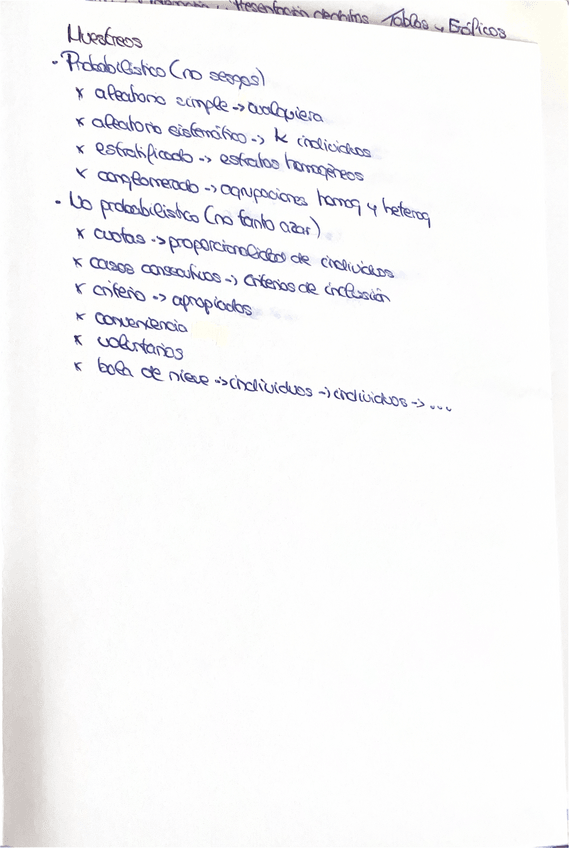 Presentación científica Tablas y Gráficos
Muestreos
· Probabilístico (no sesgos)
x aleatorio simple -> cualquiera
x aleatorio sistemático -> k individuos
x estratificado -> estratos homogéneos
x conglomerado -> agrupaciones homog y heterog
· No probabilístico (no tanto azar)
x cuotas -> proporcionalidad de individuos
x casos consecutivos -> criterios de inclusión
x criterio -> apropiados
x conveniencia
x voluntarios
x bola de nieve -> individuos -> individuos -> ...